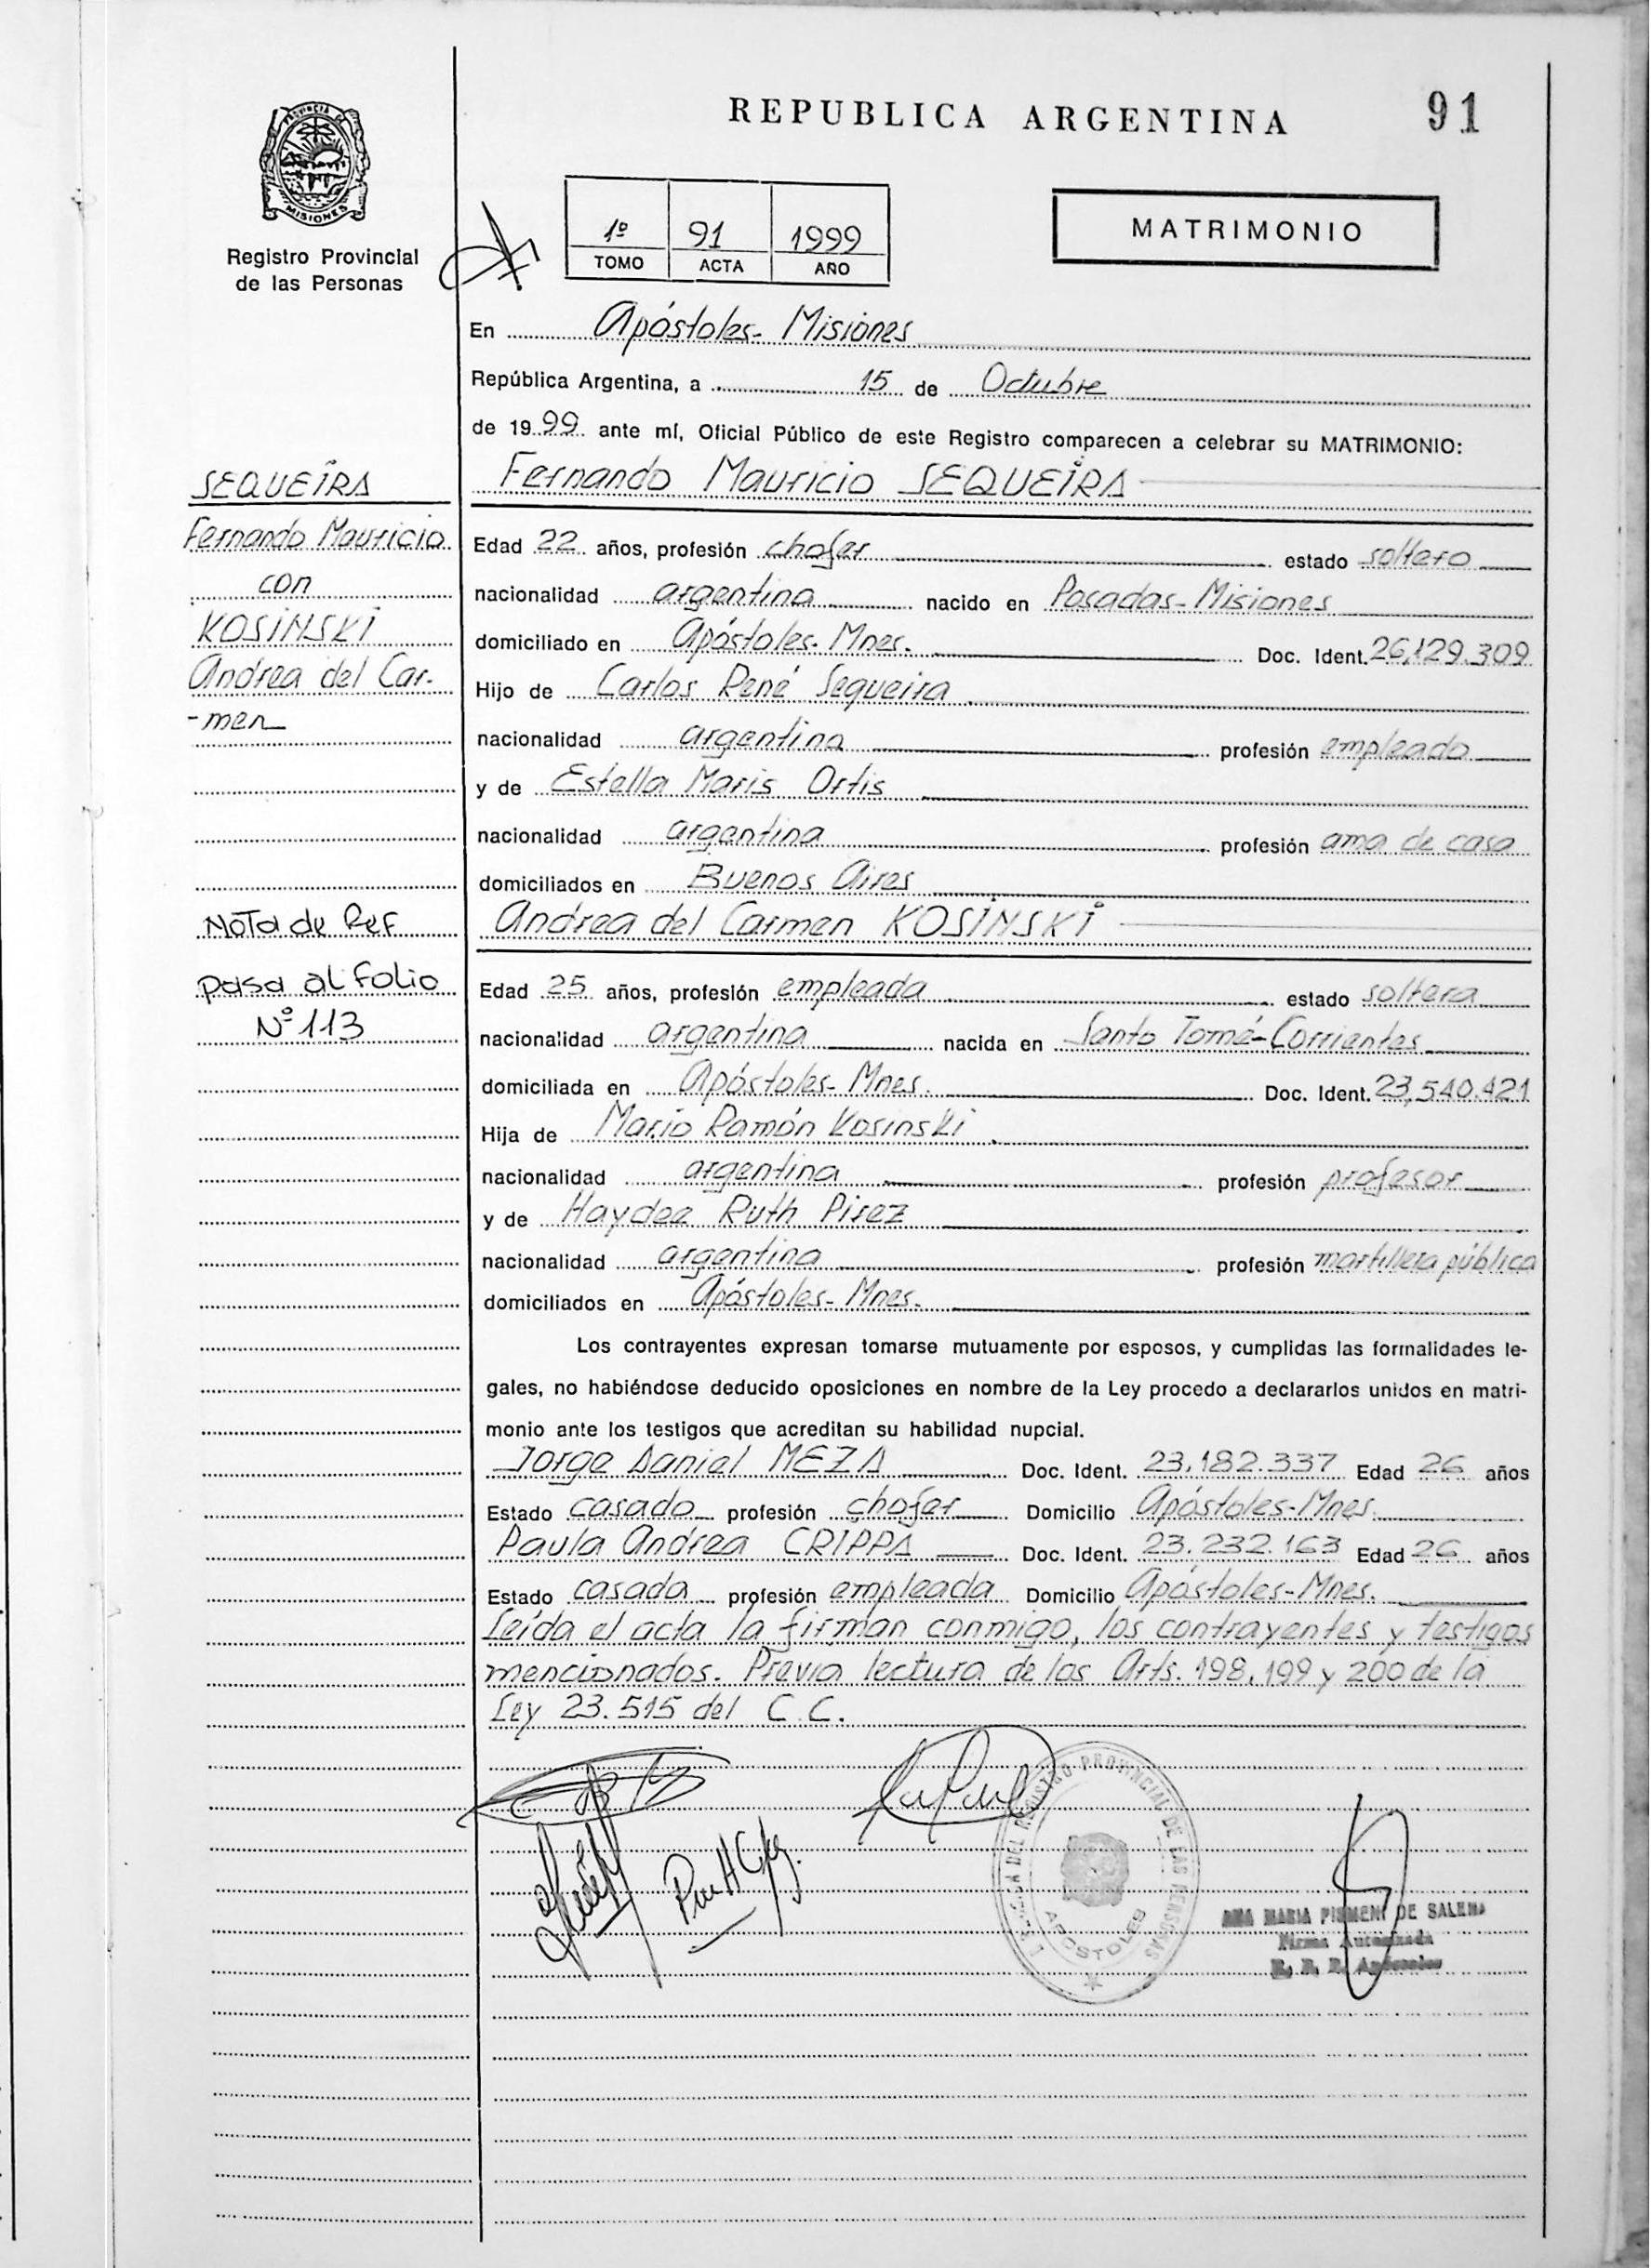 REPUBLICA ARGENTINA
91
PROVINCIA DE
MISIONES
Registro Provincial
de las Personas
1º 91 1999
TOMO ACTA AÑO
MATRIMONIO
En Apóstoles - Misiones
República Argentina, a 15 de Octubre
de 1999 ante mí, Oficial Público de este Registro comparecen a celebrar su MATRIMONIO:
Fernando Mauricio SEQUEIRA
SEQUEIRA
Fernando Mauricio
con
KOSINSKI
Andrea del Car-
-men
Edad 22 años, profesión chofer estado soltero
nacionalidad argentina nacido en Posadas - Misiones
domiciliado en Apóstoles - Mnes. Doc. Ident. 26.129.309
Hijo de Carlos René Sequeira
nacionalidad argentina profesión empleado
y de Estella Maris Ortis
nacionalidad argentina profesión ama de casa
domiciliados en Buenos Aires
Andrea del Carmen KOSINSKI
Nota de Ref
pasa al Folio
Nº 113
Edad 25 años, profesión empleada estado soltera
nacionalidad argentina nacida en Santo Tomé - Corrientes
domiciliada en Apóstoles - Mnes. Doc. Ident. 23.540.421
Hija de Mario Ramón Kosinski
nacionalidad argentina profesión profesor
y de Haydee Ruth Pirez
nacionalidad argentina profesión martillera pública
domiciliados en Apóstoles - Mnes.
Los contrayentes expresan tomarse mutuamente por esposos, y cumplidas las formalidades le-
gales, no habiéndose deducido oposiciones en nombre de la Ley procedo a declararlos unidos en matri-
monio ante los testigos que acreditan su habilidad nupcial.
Jorge Daniel MEZA Doc. Ident. 23.182.337 Edad 26 años
Estado casado profesión chofer Domicilio Apóstoles - Mnes.
Paula Andrea CRIPPA Doc. Ident. 23.232.163 Edad 26 años
Estado casada profesión empleada Domicilio Apóstoles - Mnes.
Leída el acta la firman conmigo, los contrayentes y testigos
mencionados. Previa lectura de los Arts. 198, 199 y 200 de la
Ley 23.515 del C.C.
DEL REGISTRO PROVINCIAL DE LAS PERSONAS
APOSTOLES
ANA MARIA DE SALENA
Firma Autorizada
Apóstoles